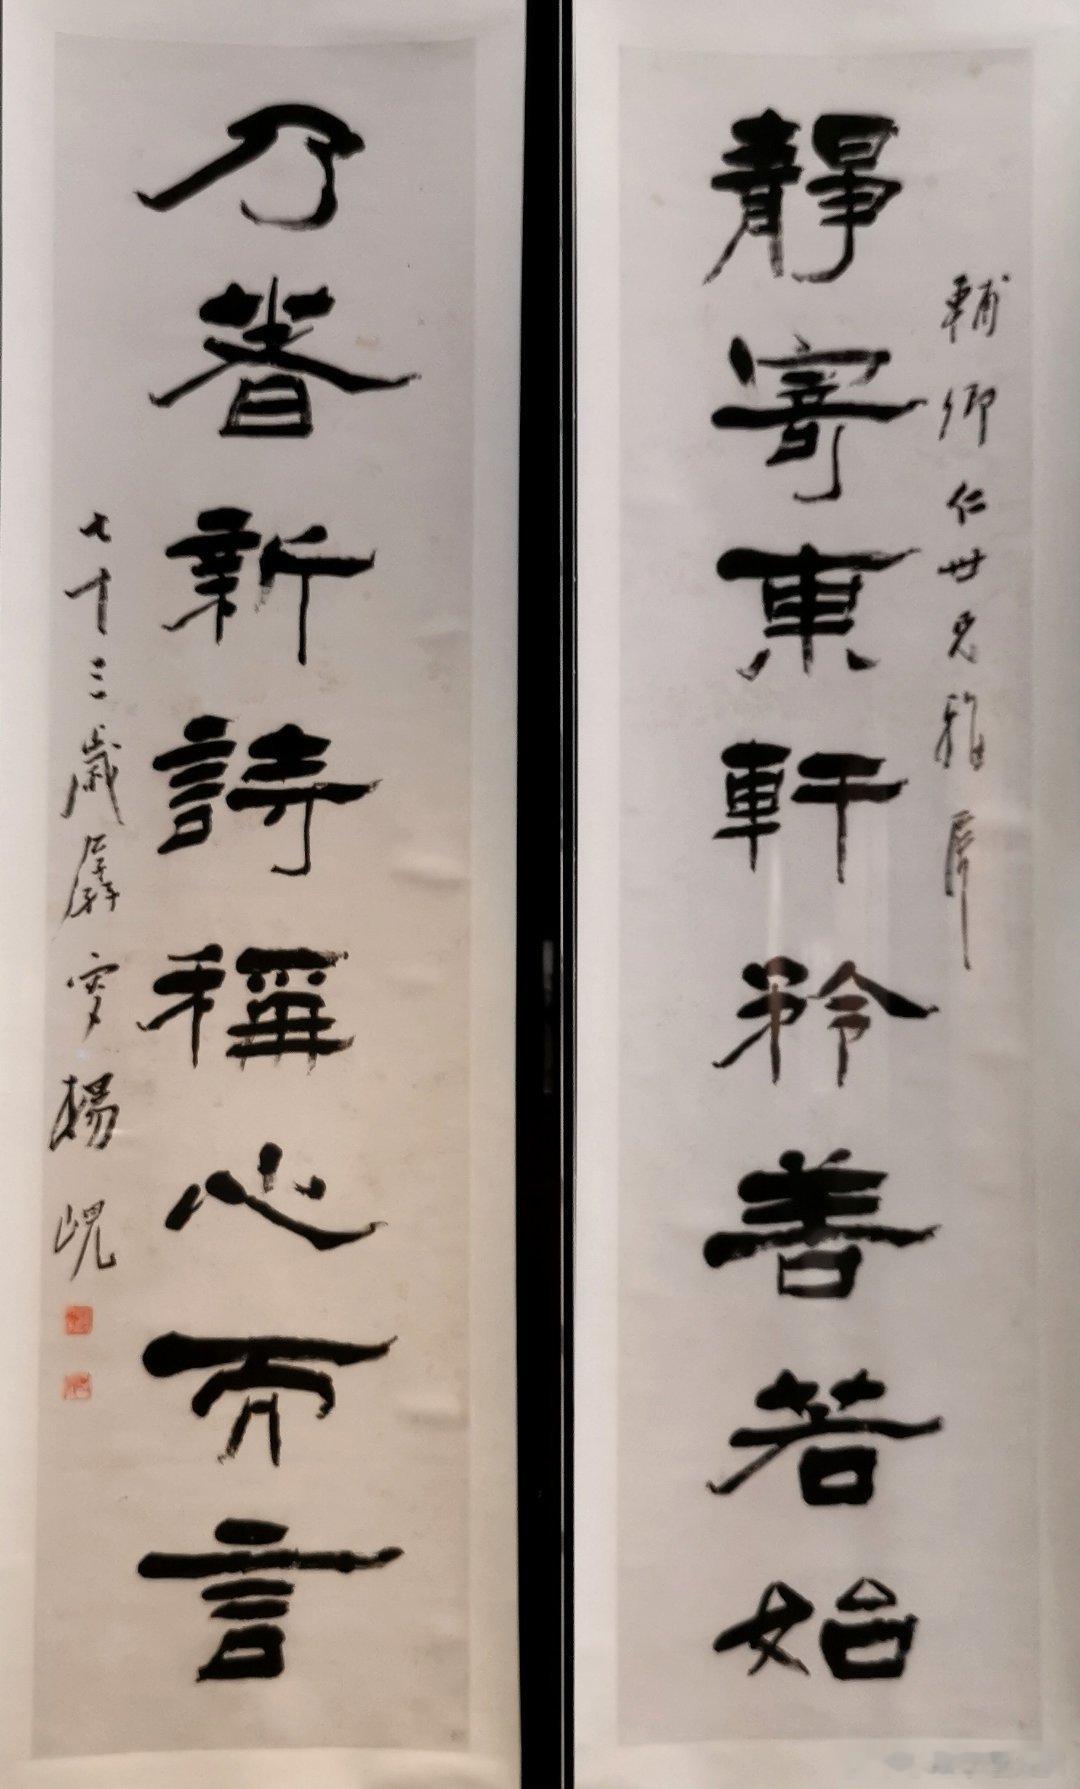 輔卿仁世兄雅屬
靜寄東軒矜善若始
乃著新詩稱心而言
七十三歲孱叟楊峴